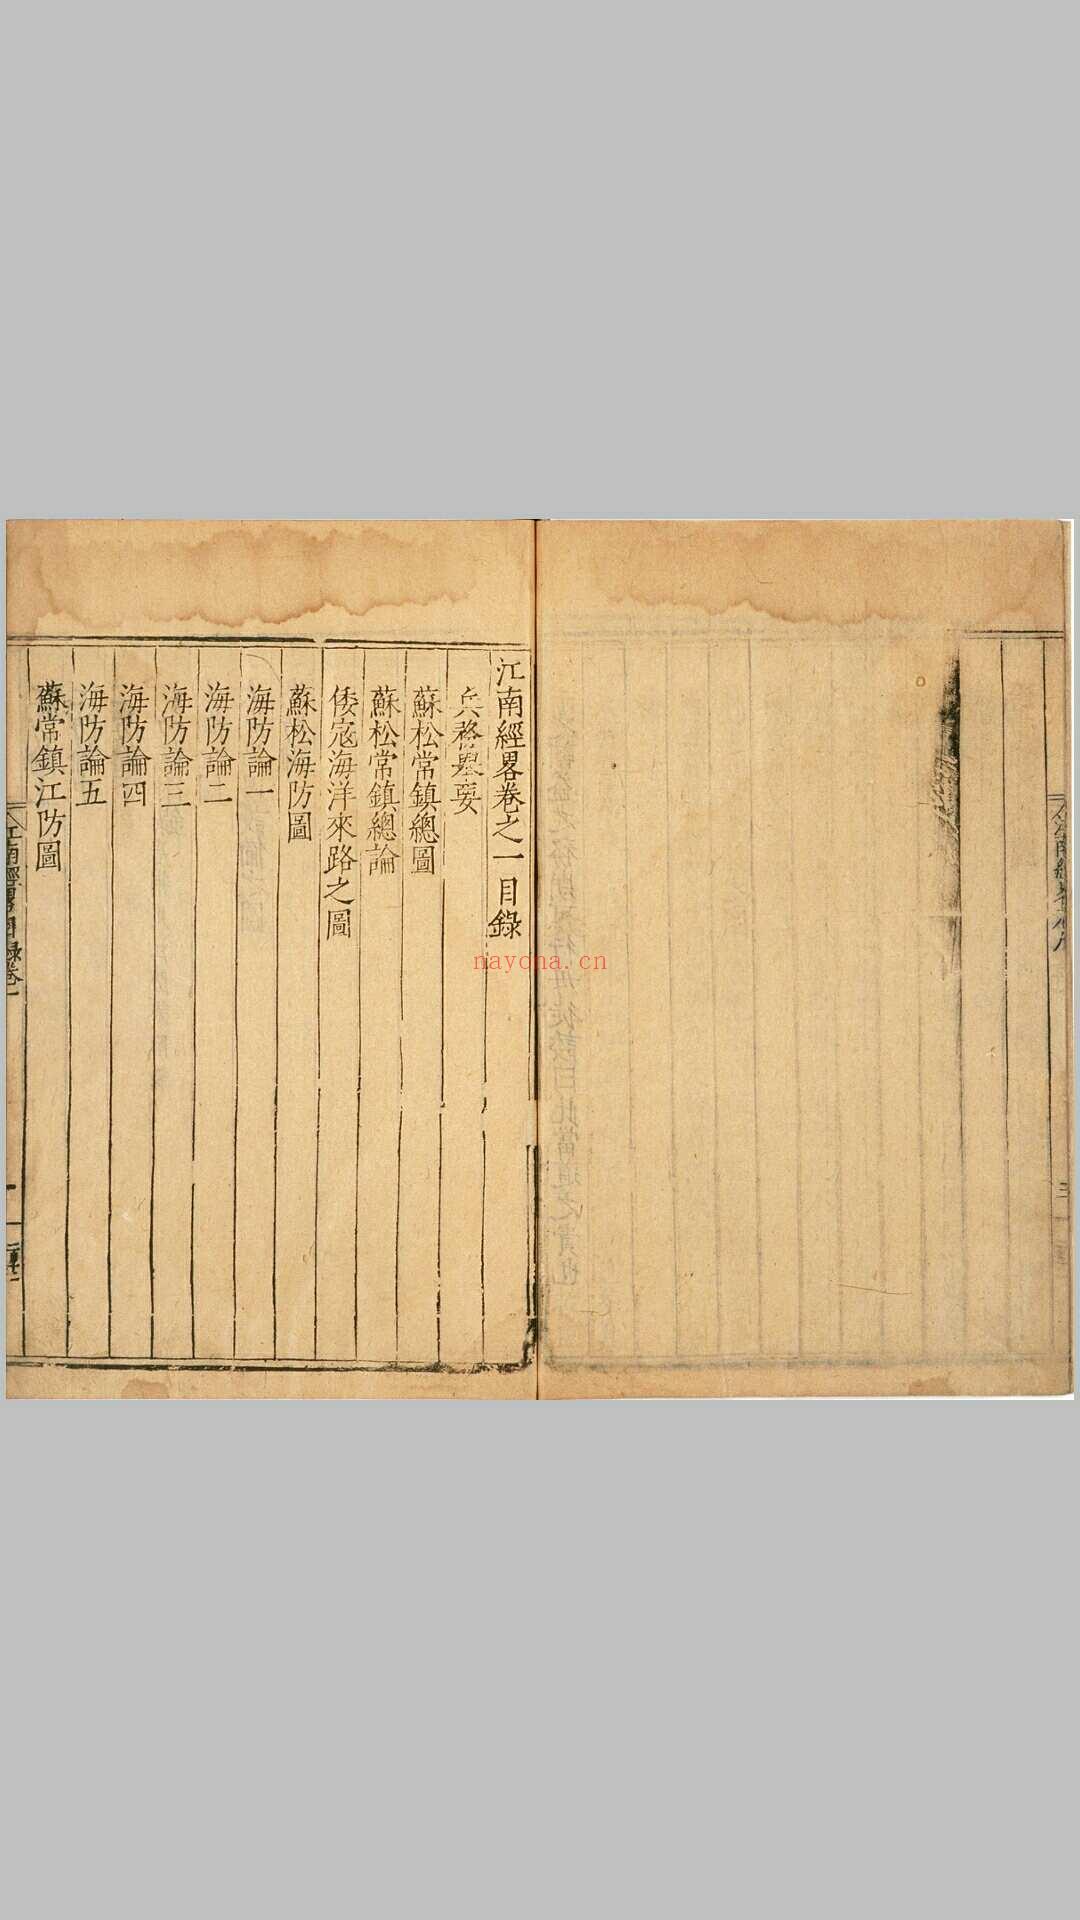 江南經畧卷之一目錄
兵務舉要
蘇松常鎮總圖
蘇松常鎮總論
倭寇海洋來路之圖
蘇松海防圖
海防論一
海防論二
海防論三
海防論四
海防論五
蘇常鎮江防圖
江南經畧目録卷一
nayona.cn